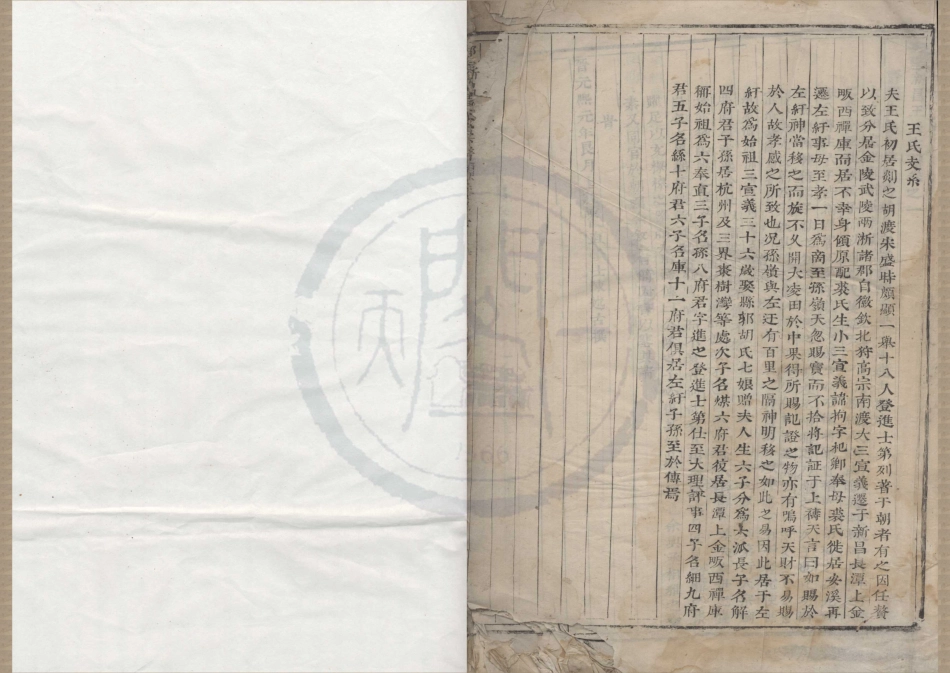 王氏支系
夫王氏初居剡之胡渡宋盛時頗顯一舉十八人登進士第列著于朝者有之因任贅
以致分居金陵武陵兩浙諸郡自徽欽北狩高宗南渡大三宣義遷于新昌長潭上金
畈西禪庫而居不幸身傾原配裘氏生小三宣義諱拘字杞鄉奉母裘氏徙居安溪再
遷左紆事母至孝一日爲南至孫嶺天忽賜寶而不拾將記証于上禱天言曰如賜於
左紆神當移之而旋不久開大凌田於中果得所賜記證之物亦有嗚呼天財不易賜
於人故孝感之所致也况孫嶺與左迂有百里之隔神明移之如此之易因此居于左
紆故爲始祖三宣義三十六歲娶縣郭胡氏七娘贈夫人生六子分爲六派長子名解
四府君子孫居杭州及三界棗樹灣等處次子名煤六府君按居長潭上金畈西禪庫
稱始祖爲六奉直三子名孫八府君字進之登進士第仕至大理評事四子名細九府
君五子名繇十府君六子名庫十一府君俱居左紆子孫至於傳焉